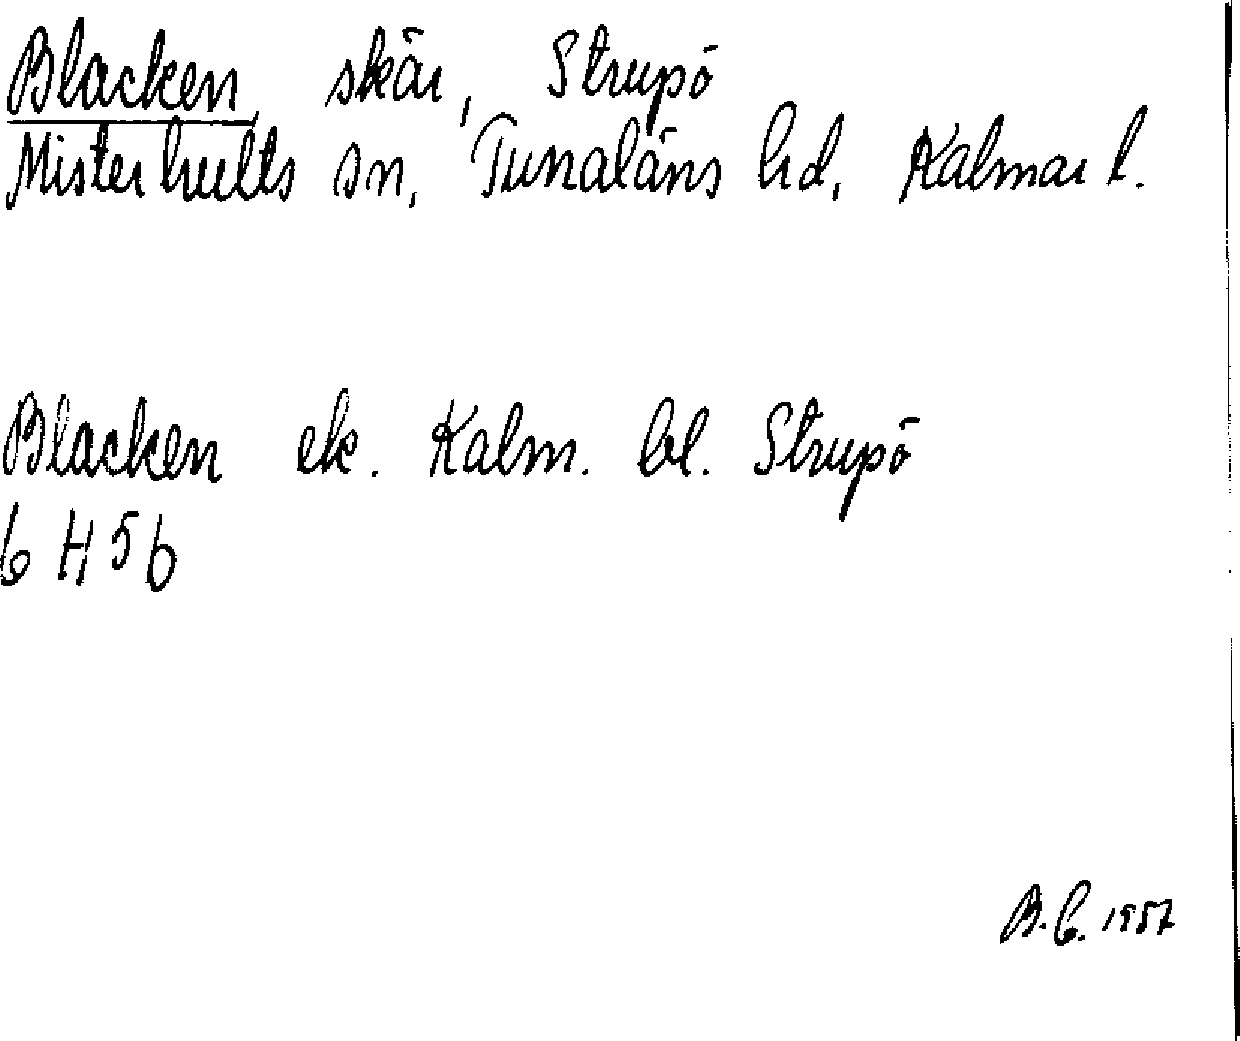 Blacken, skär, Strupö
Misterhults sn, Tunaläns hd, Kalmar l.
Blacken ek. Kalm. bl. Strupö
6 H 5 b
B.C. 1957